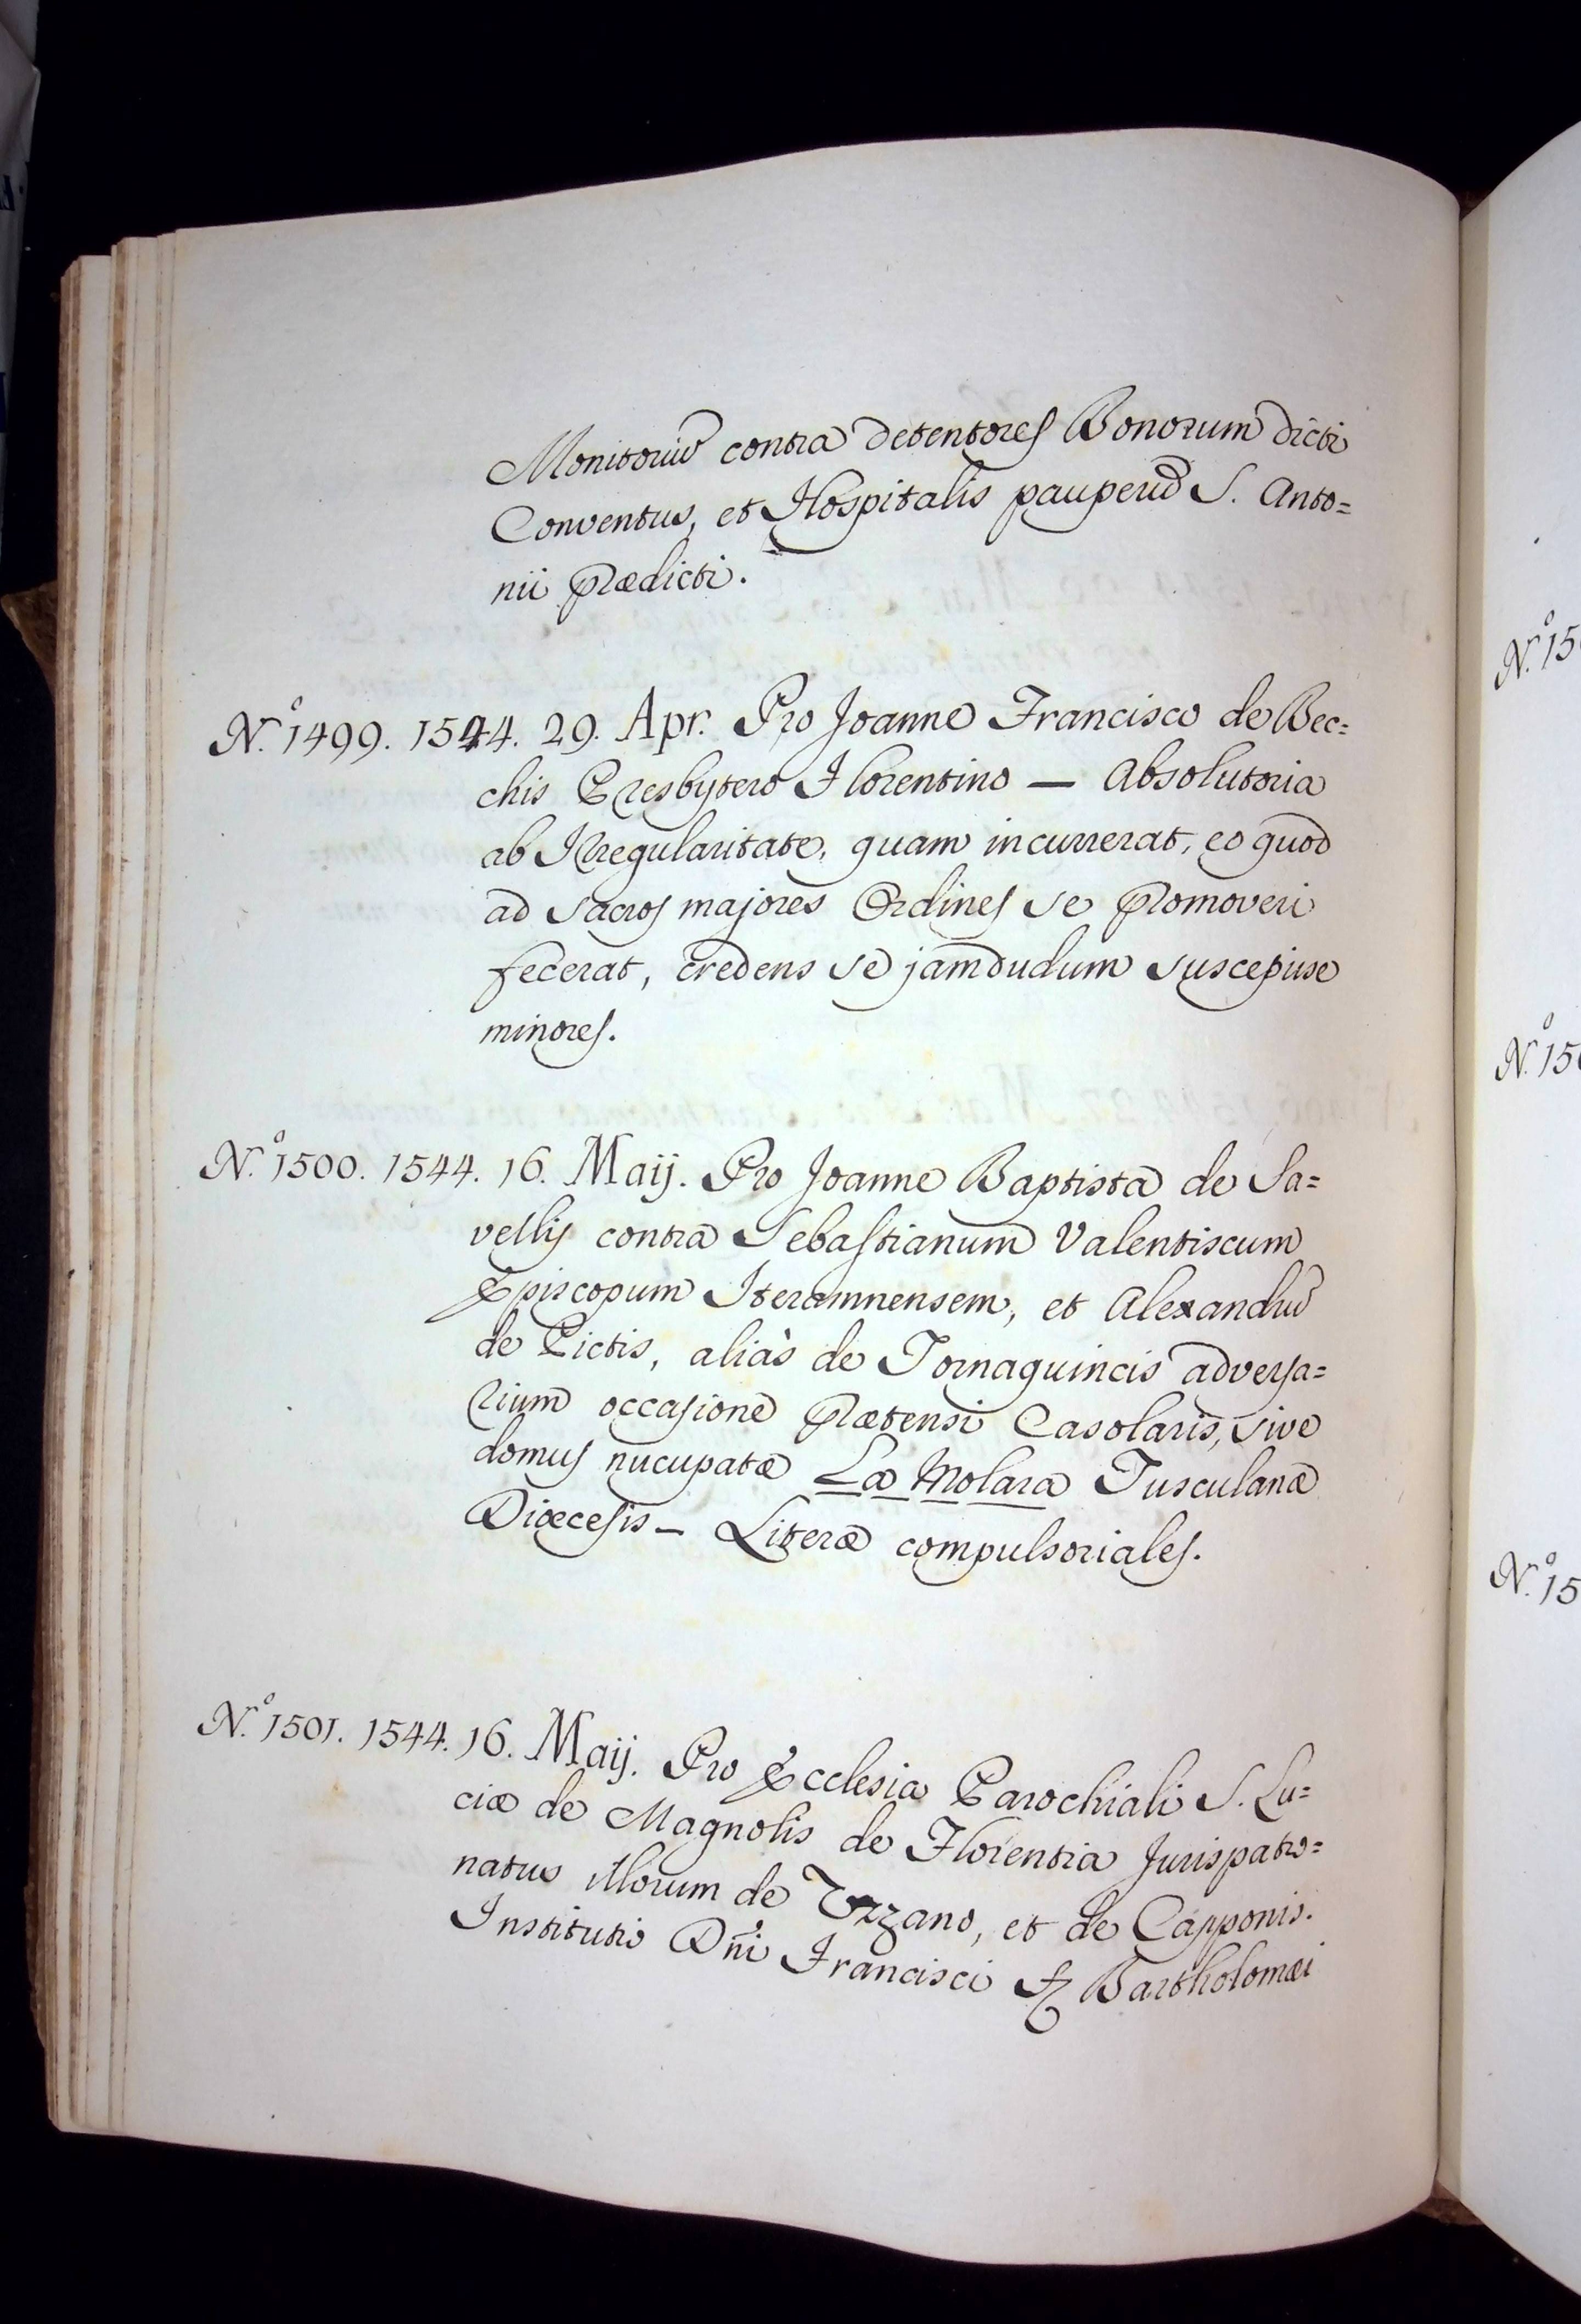 Monitoriũ contra detentores Bonorum dicti
Conventus, et Hospitalis pauperũ S. Anto=
nii prædicti.
N.º 1499. 1544. 29. Apr. Pro Joanne Francisco de Bec=
chis Presbytero Florentino — Absolutoria
ab Irregularitate, quam incurrerat, eo quod
ad sacros majores Ordines se promoveri
fecerat, credens se jamdudum suscepisse
minores.
N.º 1500. 1544. 16. Maij. Pro Joanne Baptista de Sa=
vellis contra Sebastianum Valentiscum
Episcopum Iteramnensem, et Alexandrũ
de Pictis, aliàs de Tornaquincis adversa=
rium occasione prætensi Casolaris, sive
domus nucupatæ La Molara Tusculanæ
Diœcesis — Literæ compulsoriales.
N.º 1501. 1544. 16. Maij. Pro Ecclesia Parochiali S. Lu=
ciæ de Magnolis de Florentia Jurispatro=
natus illorum de Uzzano, et de Capponis.
Institutio Dñi Francisci Bartholomæi
N.º 15
N.º 15
N.º 15